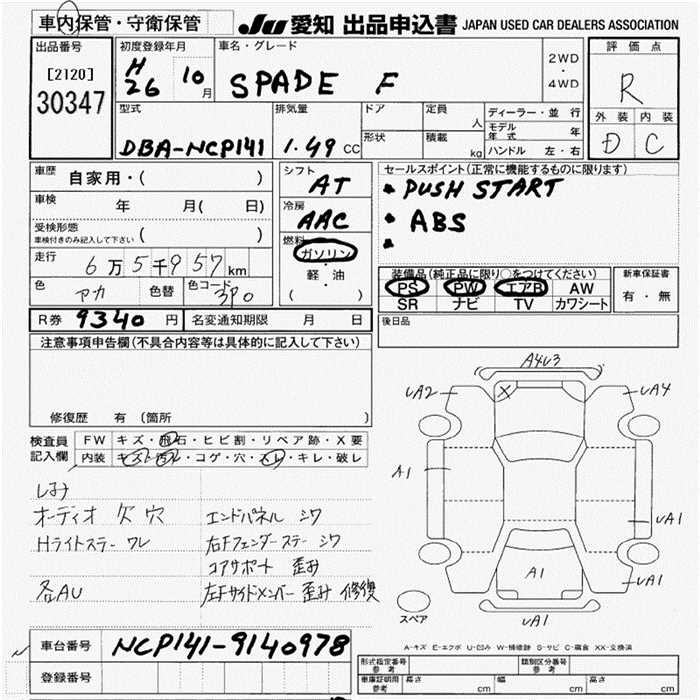 車内保管・守衛保管 JU 愛知 出品申込書 JAPAN USED CAR DEALERS ASSOCIATION
出品番号 [2120] 30347
初度登録年月 H26 10月
車名・グレード SPADE F
2WD・4WD
評価点 R
外装 内装
D C
型式 DBA-NCP141
排気量 1.49 CC
ドア 形状
定員 人 積載 kg
ディーラー・並行
モデル年式 年
ハンドル 左・右
車歴 自家用・( )
車検 年 月( 日)
受検形態 車検付きのみ記入して下さい ( )
走行 6万5千957km
色 アカ 色替 色コード 3P0
シフト AT
冷房 AAC
燃料 ガソリン・軽油 ( )
セールスポイント(正常に機能するものに限ります)
・PUSH START
・ABS
・
装備品(純正品に限り○をつけてください)
PS PW エアB AW
SR ナビ TV カワシート
新車保証書 有・無
R券 9340円 名変通知期限 月 日
後日品
注意事項申告欄(不具合内容等は具体的に記入して下さい)
修復歴 有(箇所 )
検査員記入欄
FW キズ・飛石・ヒビ割・リペア跡・X要
内装 キズ・汚レ・コゲ・穴・スレ・キレ・破レ
しみ
オーディオ欠穴 エンドパネル シワ
Hライトステー ワレ 右Fフェンダーステー シワ
コアサポート 歪み
各AU 左Fサイドメンバー 歪み 修復
A4U3
UA2 X UA4
A1
UA1
A1 UA1
スペア UA1
A-キズ E-エクボ U-凹み W-補修跡 S-サビ C-腐食 XX-交換済
車台番号 NCP141-9140978
登録番号
型式指定番号 参考 類別区分番号 参考
車庫証明用 参考 長さ cm 幅 cm 高さ cm